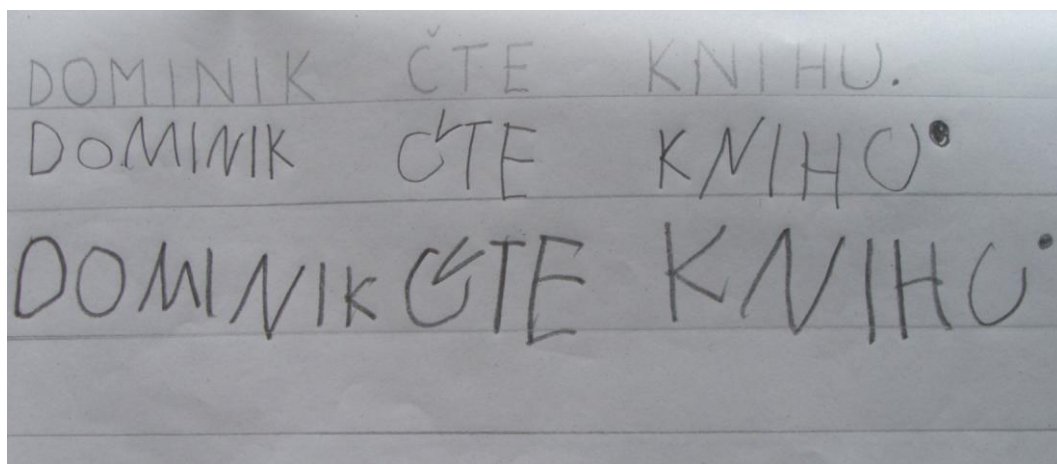 DOMINIK ČTE KNIHU.
DOMINIK ČTE KNIHU.
DOMINIK ČTE KNIHU.